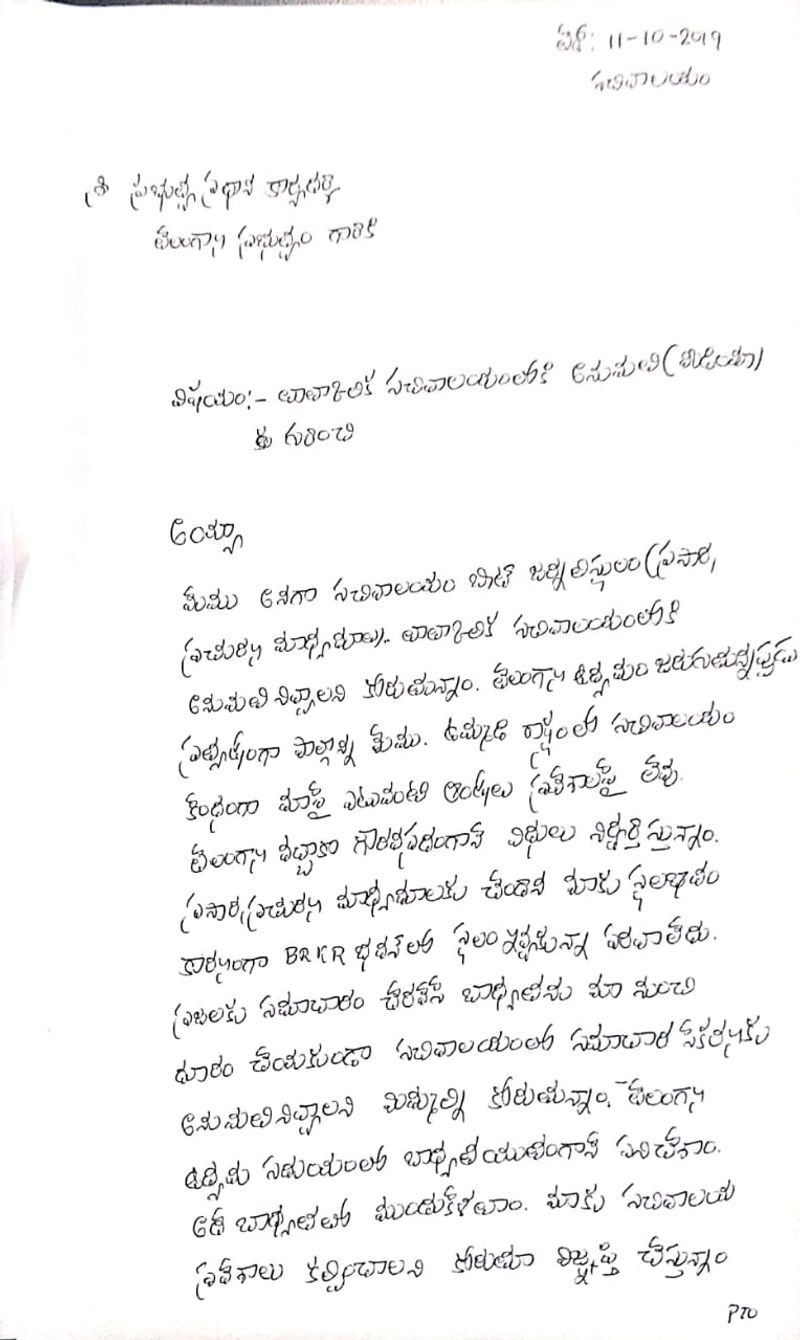 తేది: 11-10-2019
సచివాలయం
శ్రీ ప్రభుత్వ ప్రధాన కార్యదర్శి
తెలంగాణ ప్రభుత్వం గారికి
విషయం:- తాత్కాలిక సచివాలయంలోకి అనుమతి (మీడియా)
కు గురించి
అయ్యా
మేము అనగా సచివాలయం బీట్ జర్నలిస్టులం (ప్రసార,
ప్రచురణ మాధ్యమాలు).. తాత్కాలిక సచివాలయంలోకి
అనుమతినివ్వాలని కోరుతున్నాం. తెలంగాణ ఉద్యమం జరుగుతున్నప్పుడు
ప్రత్యక్షంగా పాల్గొన్న మేము. ఉమ్మడి రాష్ట్రంలో సచివాలయం
కేంద్రంగా మాపై ఎటువంటి ఆంక్షలు ప్రవేశాలపై లేవు.
తెలంగాణ వచ్చాకా గౌరవప్రదంగానే విధులు నిర్వర్తిస్తున్నాం.
ప్రసార, ప్రచురణ మాధ్యమాలకు చెందిన మాకు స్థలాభావం
కారణంగా BRKR భవన్‌లో స్థలం ఇవ్వకున్నా పరవాలేదు.
ప్రజలకు సమాచారం చేరవేసే బాధ్యతను మా నుంచి
దూరం చేయకుండా సచివాలయంలో సమాచార సేకరణకు
అనుమతినివ్వాలని మిమ్మల్ని కోరుతున్నాం. తెలంగాణ
ఉద్యమ సమయంలో బాధ్యతయుతంగానే పనిచేశాం.
అదే బాధ్యతతో ముందుకెళతాం. మాకు సచివాలయ
ప్రవేశాలు కల్పించాలని కోరుతూ విజ్ఞప్తి చేస్తున్నాం
PTO